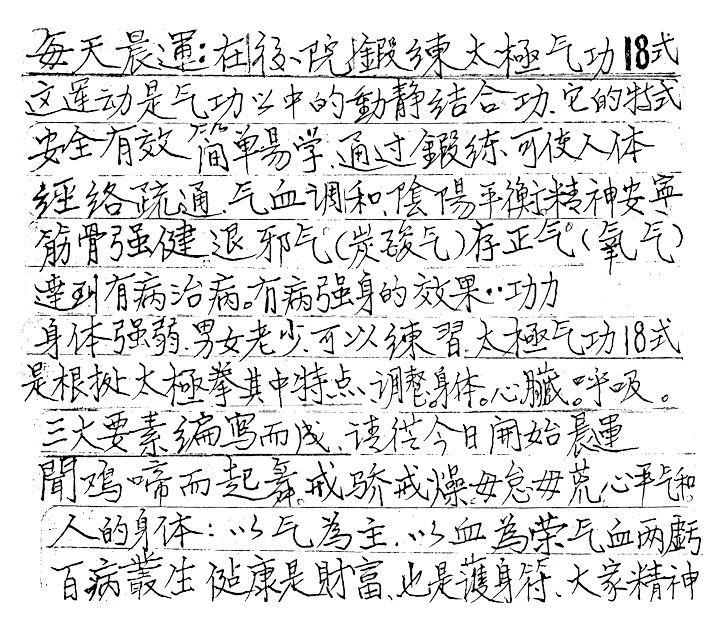 每天晨運:在後、院鍛練太極气功18式
这運动是气功以中的動静结合功.它的特式
安全有效简单易学.通过鍛練.可使人体
經絡疏通.气血调和.陰陽平衡.精神安寧
筋骨强健.退邪气(炭酸气)存正气(氧气)
達到有病治病。有病强身的效果··功力
身体强弱.男女老少.可以練習.太極气功18式
是根扯太極拳其中特点、调整身体。心臟。呼吸。
三大要素编寫而成、请從今日開始晨運
聞鸡啼而起舞.戒骄戒燥.毋怠毋荒心平气和.
人的身体:以气為主.以血為荣气血两虧
百病叢生健康是財富.也是護身符.大家精神